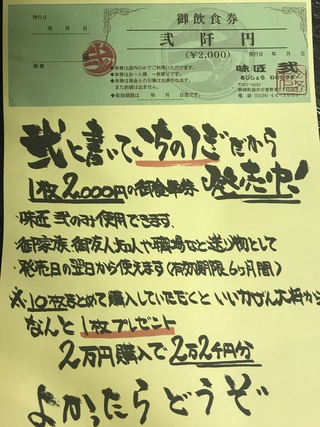 御飲食券
発行日
年 月 日
弐阡円
(¥2,000)
発行日 年 月 日
摘要
弐
◆本券は店内のみでご利用いただけます。
◆本券はお一人様、一枚限りです。
◆本券は現金との引換は出来かねます。
また釣銭は出ません。
◆有効期限は 年 月 日迄。
味匠 弐
弐と書いていちのつぎだから
1枚2,000円の御食事券 発売中!
・味匠 弐のみ使用できます。
・御家族、御友人知人や職場など送り物として
・発売日の翌日から使えます(有効期限6ヶ月間)
※10枚まとめて購入していただくと
なんと1枚プレゼント
2万円購入で2万2千円分
よかったら どうぞ